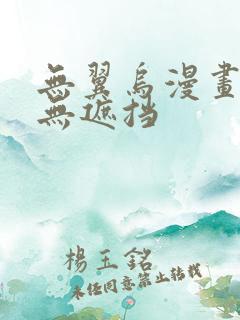 無翼烏漫畫
無遮挡
楊玉銘
未经同意禁止转载